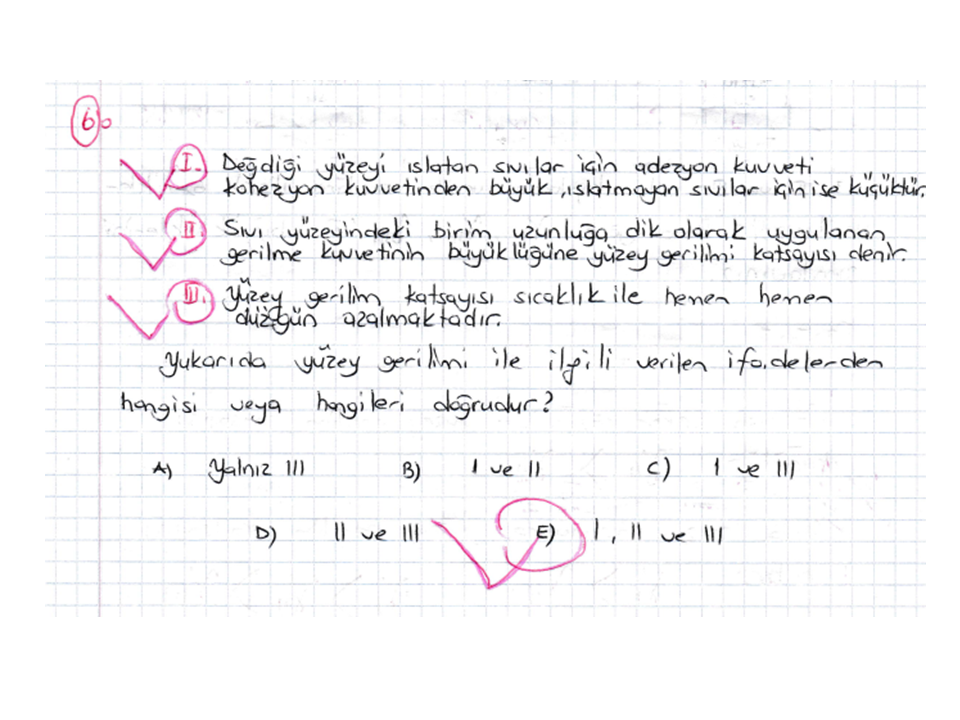 6.
I. Değdiği yüzeyi ıslatan sıvılar için adezyon kuvveti
kohezyon kuvvetinden büyük, ıslatmayan sıvılar için ise küçüktür.
II. Sıvı yüzeyindeki birim uzunluğa dik olarak uygulanan
gerilme kuvvetinin büyüklüğüne yüzey gerilimi katsayısı denir.
III. Yüzey gerilim katsayısı sıcaklık ile hemen hemen
düzgün azalmaktadır.
Yukarıda yüzey gerilimi ile ilgili verilen ifadelerden
hangisi veya hangileri doğrudur?
A) Yalnız III B) I ve II C) I ve III
D) II ve III E) I, II ve III